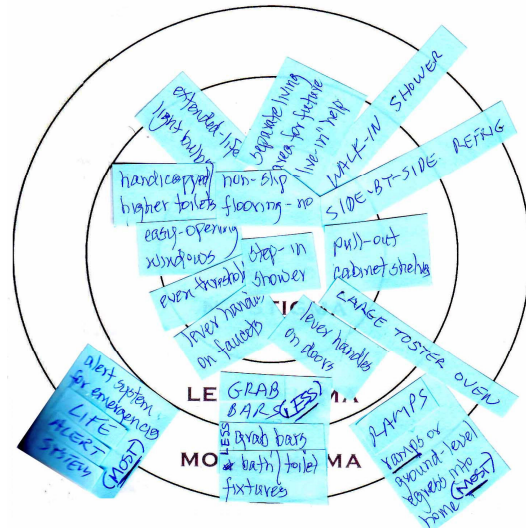 extended-life
light bulbs
separate living
area for future
"live-in" help
WALK-IN SHOWER
SIDE-BT-SIDE REFRIG
handicapped
higher toilets
non-slip
flooring-no
easy-opening
windows
step-in
shower
pull-out
cabinet shelves
even threshold
lever handles
on faucets
lever handles
on doors
LARGE TOSTER OVEN
LE
MA
alert system
for emergencies
LIFE
ALERT
SYSTEM
(MOST)
GRAB
BARS (LESS)
LESS
grab bars
bath/toilet
fixtures
MO
MA
RAMPS
ramps or
ground-level
egress into
home (MOST)